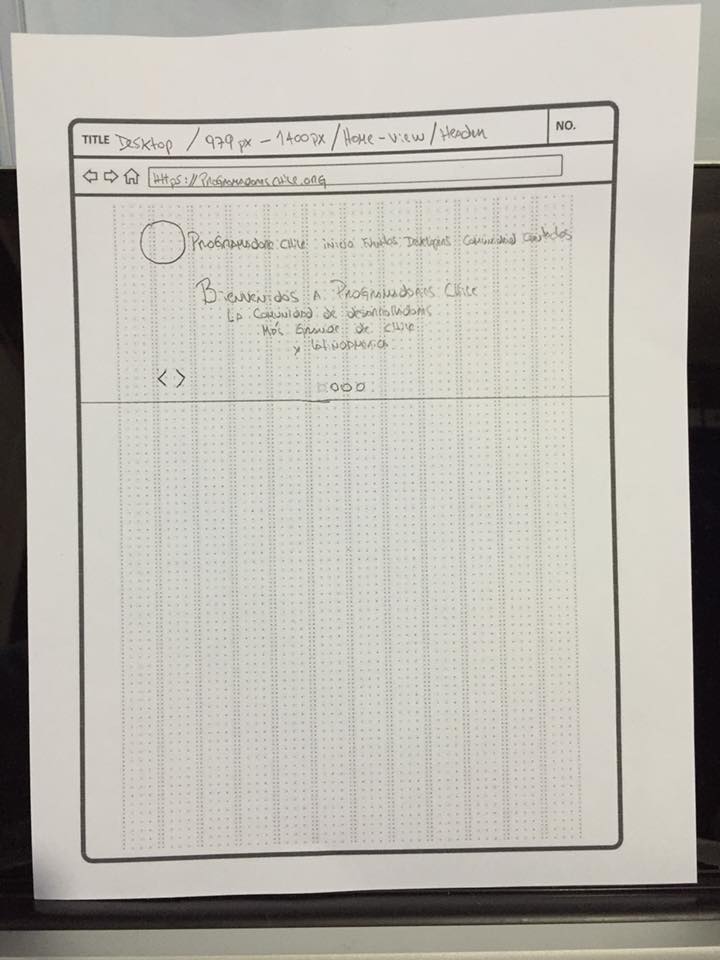 TITLE Desktop / 979 px - 1400px / Home-view / Header
NO.
https://Programadoreschile.org
Programadores Chile inicio Eventos Developers Comunidad Contactos
Bienvenidos A Programadores Chile
La Comunidad de desarrolladores
Más Grande de Chile
y Latinoamerica